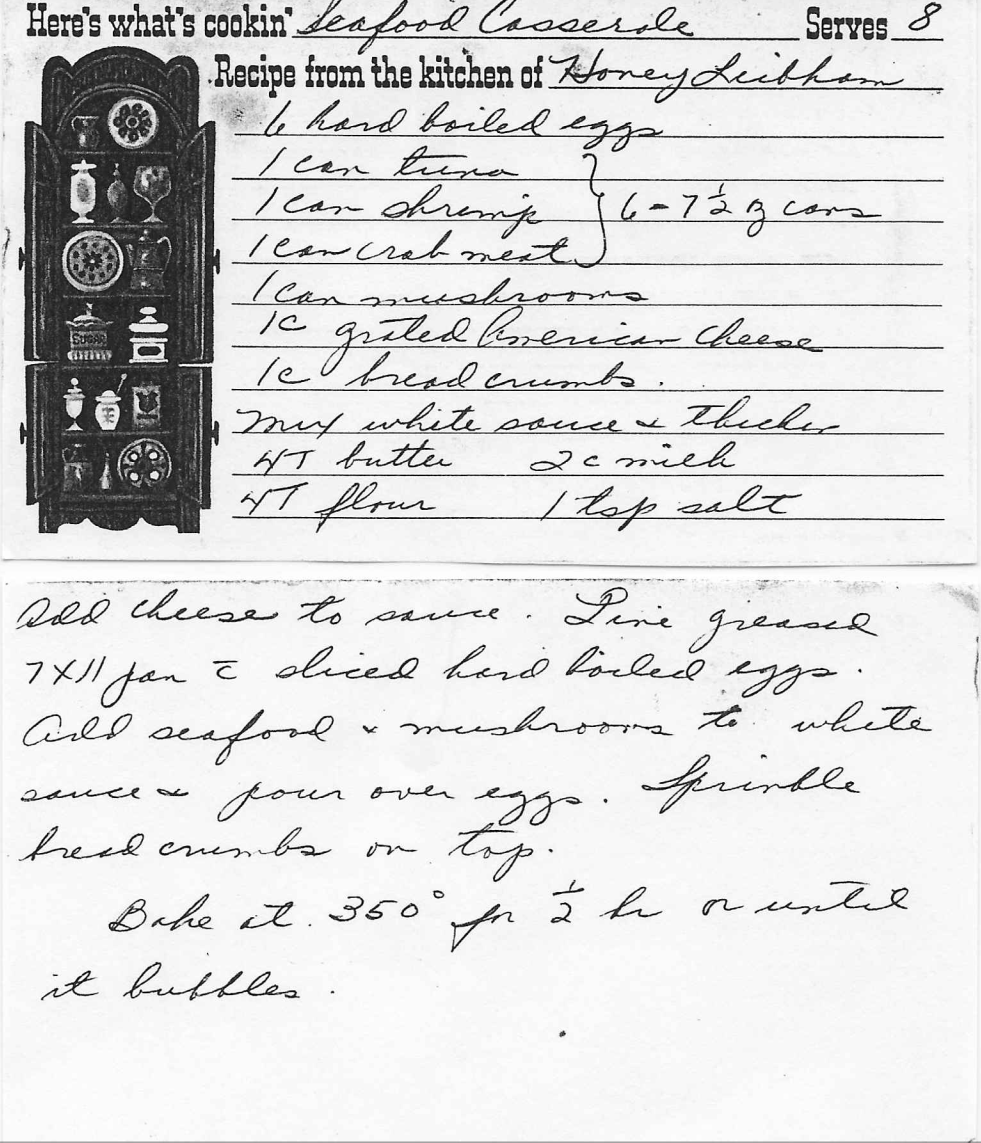 Here's what's cookin' Seafood Casserole Serves 8
Recipe from the kitchen of Honey Leibham
6 hard boiled eggs
1 can tuna
1 can shrimp } 6 - 7 1/2 oz cans
1 can crab meat
1 can mushrooms
1c grated American cheese
1c bread crumbs.
mix white sauce & thicken
4T butter 2c milk
4T flour 1 tsp salt
SUGAR
Add cheese to sauce. Line greased
7X11 pan c̄ sliced hard boiled eggs.
Add seafood & mushrooms to white
sauce & pour over eggs. Sprinkle
bread crumbs on top.
Bake at 350° for 1/2 hr or until
it bubbles.